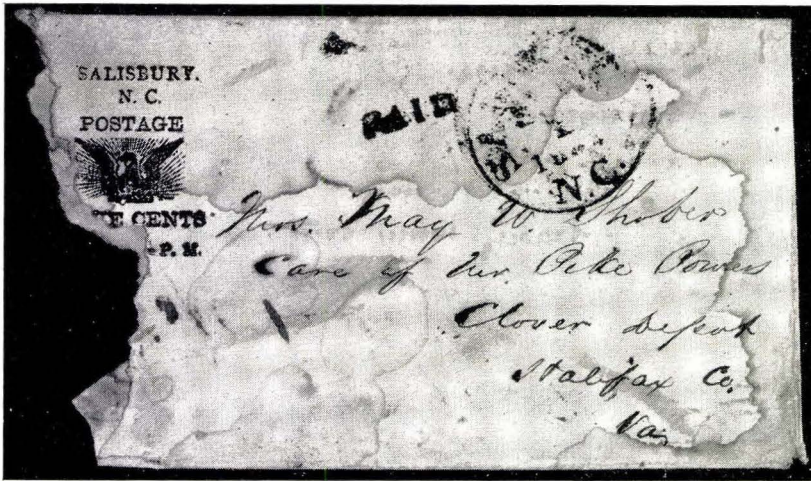 SALISBURY.
N. C.
POSTAGE
TE CENTS
P. M.
PAID
N.C.
Mrs. May W. Shober
Care of Mr. Pike Powers
Clover Depot
Halifax Co.
Va.